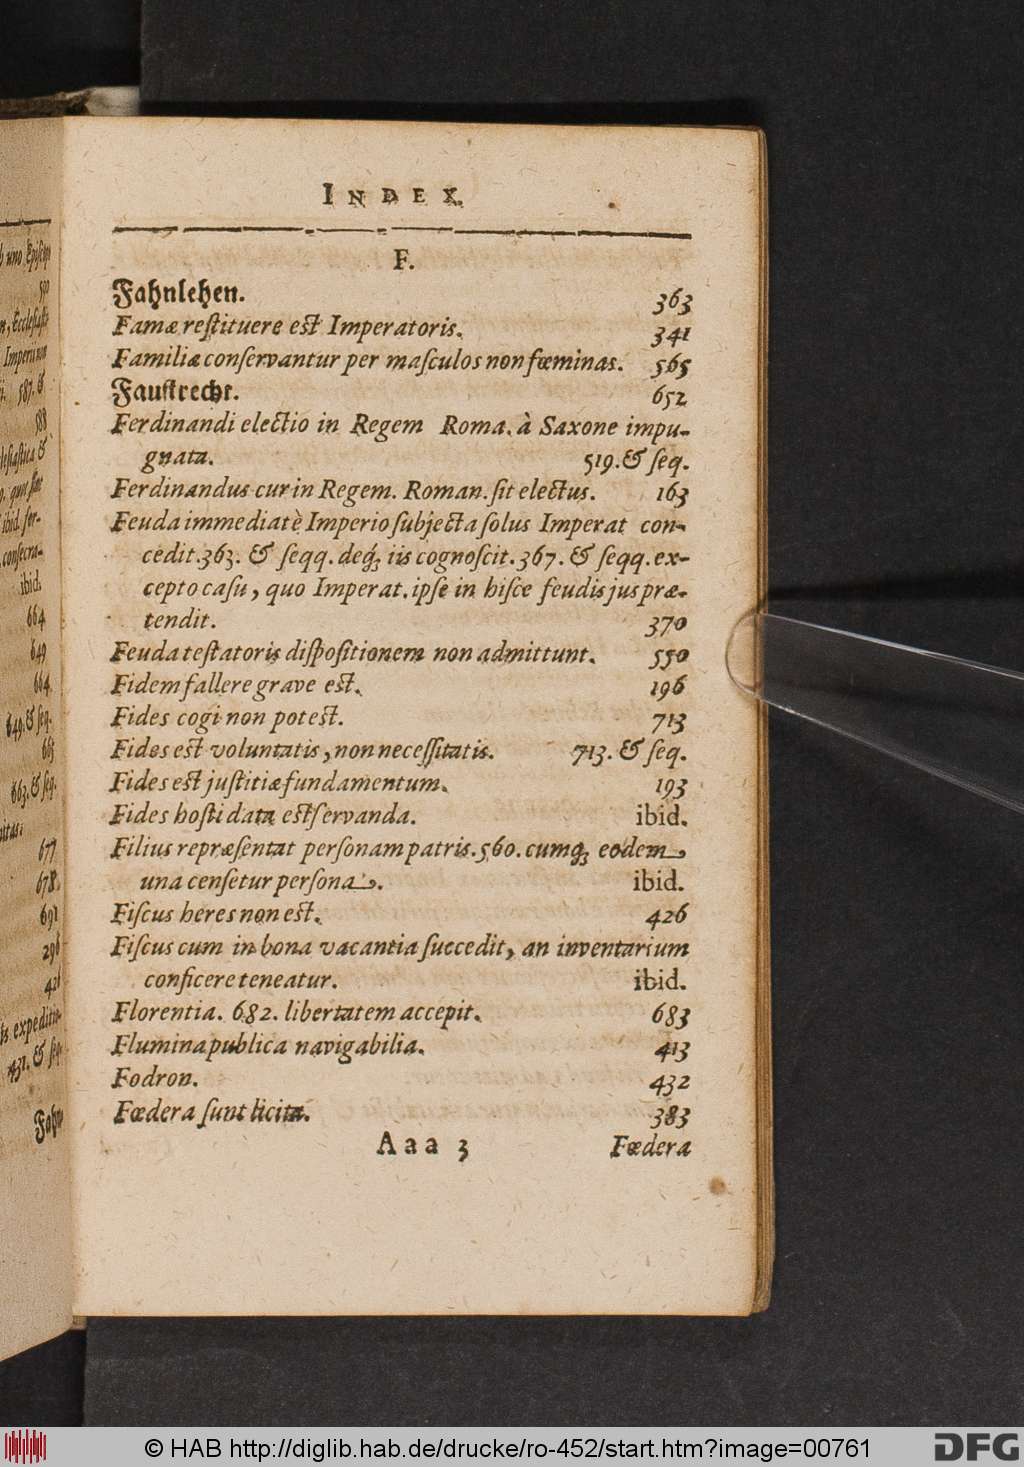 INDEX.
F.
Fahnlehen. 363
Famæ reſtituere eſt Imperatoris. 341
Familiæ conſervantur per maſculos non fœminas. 565
Fauſtrecht. 652
Ferdinandi electio in Regem Roma. à Saxone impu-
gnata. 519. & ſeq.
Ferdinandus cur in Regem. Roman. ſit electus. 163
Feuda immediatè Imperio ſubjecta ſolus Imperat con-
cedit. 363. & ſeqq. deq́; iis cognoſcit. 367. & ſeqq. ex-
cepto caſu, quo Imperat. ipſe in hiſce feudis jus præ-
tendit. 370
Feuda teſtatoris diſpoſitionem non admittunt. 550
Fidem fallere grave eſt. 196
Fides cogi non poteſt. 713
Fides eſt voluntatis, non neceſſitatis. 713. & ſeq.
Fides eſt juſtitiæ fundamentum. 193
Fides hoſti data eſt ſervanda. ibid.
Filius repræſentat perſonam patris. 560. cumq; eodem
una cenſetur perſona. ibid.
Fiſcus heres non eſt. 426
Fiſcus cum in bona vacantia ſuccedit, an inventarium
conficere teneatur. ibid.
Florentia. 682. libertatem accepit. 683
Flumina publica navigabilia. 413
Fodron. 432
Fœdera ſunt licita. 383
Aaa 3 Fœdera
uno Epiſcopo
Imperii non
587. &
588
& 
ibid.
conſecra-
ibid.
664
649
664.
649. & ſeq.
663
663. & ſeq.
677
678.
691
expeditio-
431. & ſeq.
© HAB http://diglib.hab.de/drucke/ro-452/start.htm?image=00761
DFG